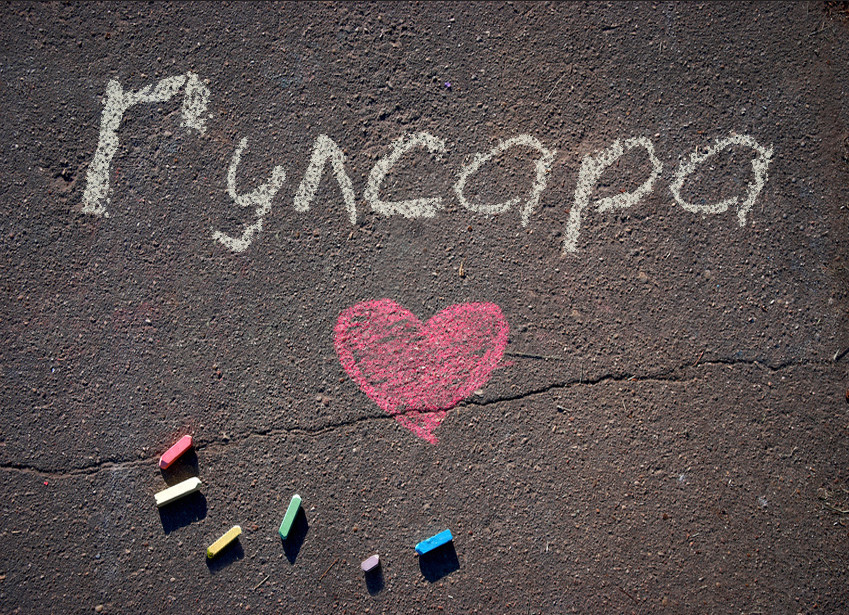 Гулсара